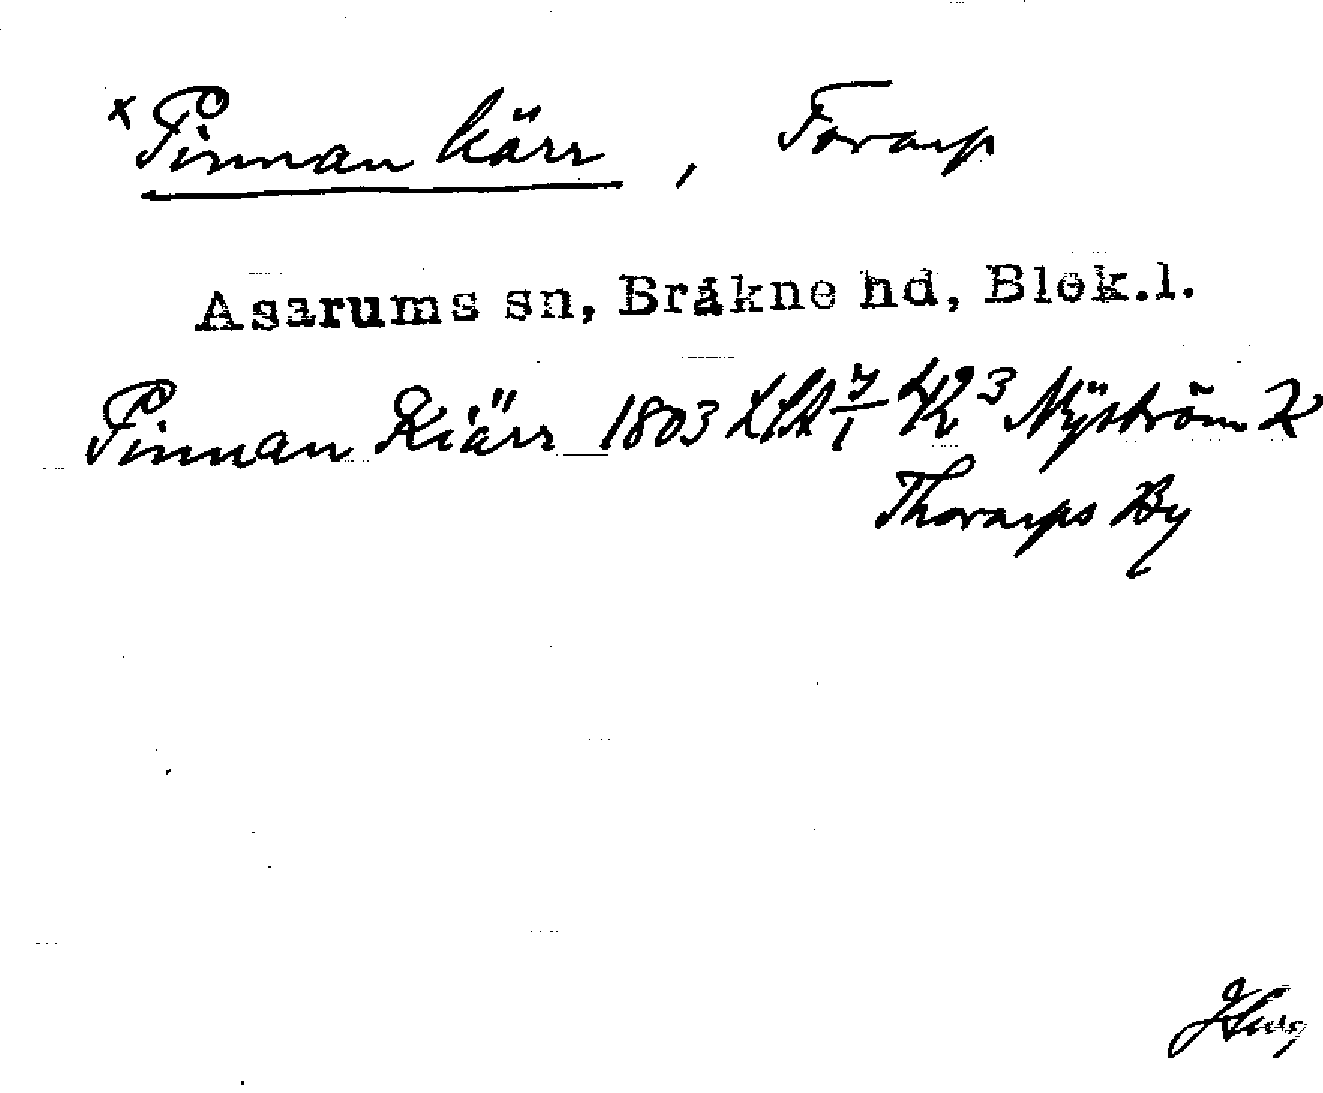 x Pinnan kärr, Torarp
Asarums sn, Bräkne hd, Blek.l.
Pinnan Kiärr 1803 LSA 7/1 Nÿström K
Thorarps By